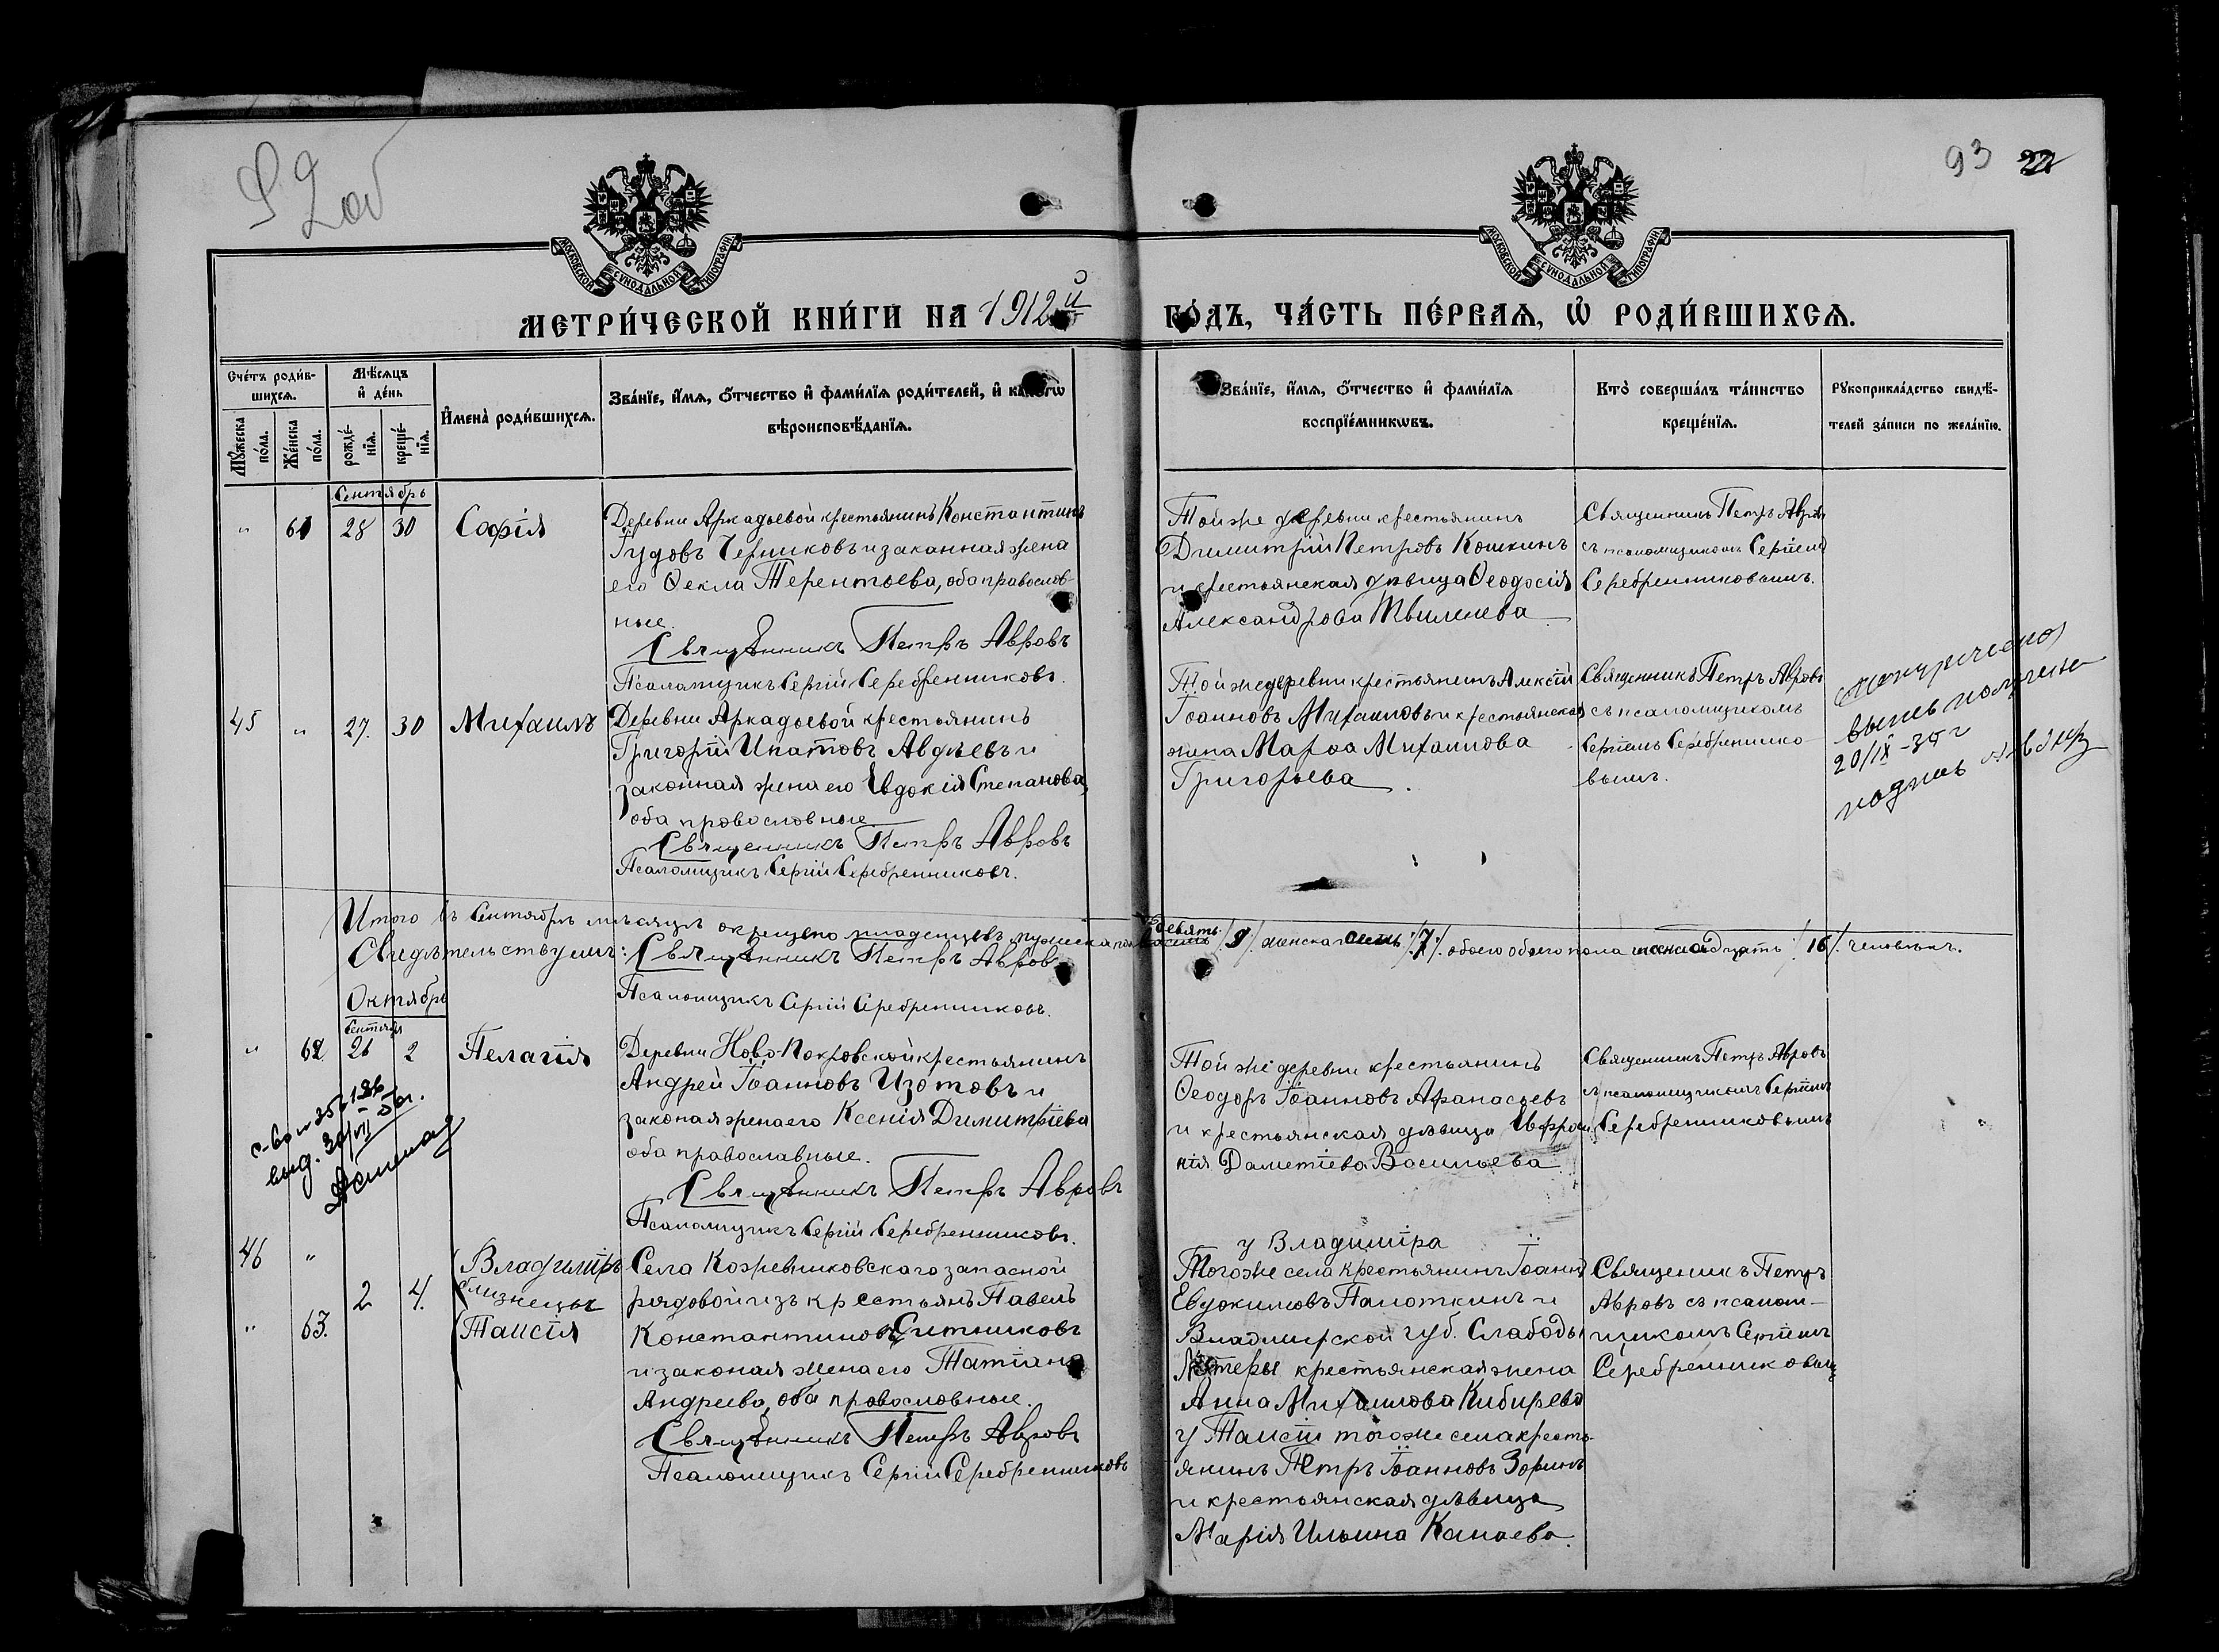 93 22
МОСКОВСКОЙ СѴНОДАЛЬНОЙ ТИПОГРАФІИ
МОСКОВСКОЙ СѴНОДАЛЬНОЙ ТИПОГРАФІИ
МЕТРИ́ЧЕСКОЙ КНИ́ГИ НА 1912й
ГО́ДЪ, ЧА́СТЬ ПЕ́РВАѦ, Ѡ҆ РОДИ́ВШИХСѦ.
Сче́тъ роди́в-
шихсѧ.
Мꙋ́жеска
по́ла.
Же́нска
по́ла.
Мѣ́сѧцъ
и҆ де́нь
рожде́-
нїѧ.
креще́-
нїѧ.
И҆мена̀ роди́вшихсѧ.
Зва́нїе, и҆́мѧ, о҆́тчество и҆ фами́лїѧ роди́телей, и҆ како́гѡ
вѣроисповѣ́данїѧ.
Зва́нїе, и҆́мѧ, о҆́тчество и҆ фами́лїѧ
воспрїе́мникѡвъ.
Кто̀ соверша́лъ та́инство
креще́нїѧ.
Рꙋкоприкла́дство свидѣ́-
телей за́писи по жела́нїю.
Сентябрь
" 61 28 30 Софія
Деревни Аркадьевой крестьянинъ Константинъ
Гудовъ Черниковъ и законная жена
его Ѳекла Терентьева, оба православ-
ные.
Священникъ Петръ Авровъ
Псаломщикъ Сергій Серебренниковъ.
Той же деревни крестьянинъ
Димитрій Петровъ Кошкинъ
и крестьянская дѣвица Ѳеодосія
Александрова
Священникъ Петръ Авровъ
съ псаломщикомъ Сергіемъ
Серебренниковымъ.
45 " 27. 30 Михаилъ
Деревни Аркадьевой крестьянинъ
Григорій Ипатовъ Авдѣевъ и
законная жена его Евдокія Степанова,
оба православные
Священникъ Петръ Авровъ
Псаломщикъ Сергій Серебренниковъ.
Той же деревни крестьянинъ Алексій
Іоанновъ Михаиловъ и крестьянская
жена Марѳа Михаилова
Григорьева.
Священникъ Петръ Авровъ
съ псаломщикомъ
Сергіемъ Серебреннико-
вымъ.
20/IX-35 г
Итого въ Сентябрѣ мѣсяцѣ окрещено младенцевъ мужеска пола девять /9/. женска семь /7/. обоего пола шестнадцать /16/. человѣкъ.
Свидѣтельствуемъ: Священникъ Петръ Авровъ
Псаломщикъ Сергій Серебренниковъ.
Октябрь
Сентября
" 62 26 2 Пелагія
Деревни Ново-Покровской крестьянинъ
Андрей Іоанновъ Изотовъ и
законая жена его Ксенія Димитріева
оба православные.
Священникъ Петръ Авровъ
Псаломщикъ Сергій Серебренниковъ.
Той же деревни крестьянинъ
Ѳеодоръ Іоанновъ Афанасьевъ
и крестьянская дѣвица Евфроси-
нія Дометіева Васильева
Священникъ Петръ Авровъ
съ псаломщикомъ Сергіемъ
Серебренниковымъ
46 " Владиміръ
близнецы
2 4.
" 63. Таисія
Села Кожевниковскаго запасной
рядовой изъ крестьянъ Павелъ
Константиновъ Ситниковъ
и законая жена его Татіана
Андреева, оба православные.
Священникъ Петръ Авровъ
Псаломщикъ Сергій Серебренниковъ
у Владиміра
Того же села крестьянинъ Іоаннъ
Евдокимовъ Палоткинъ и
Владимирской губ. Слабоды
Мстеры крестьянская жена
Анна Михаилова Кибирева
у Таисіи того же села кресть-
янинъ Петръ Іоанновъ Зоринъ
и крестьянская дѣвица
Марія Ильина Канаева.
Священикъ Петръ
Авровъ съ псалом-
щикомъ Сергіемъ
Серебренниковымъ